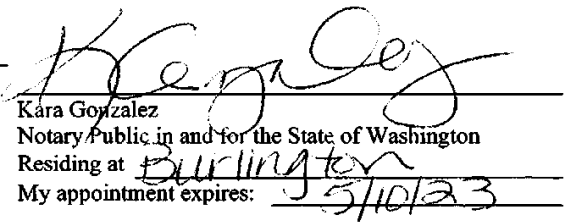 Kara Gonzalez
Notary Public in and for the State of Washington
Residing at Burlington
My appointment expires: 5/10/23